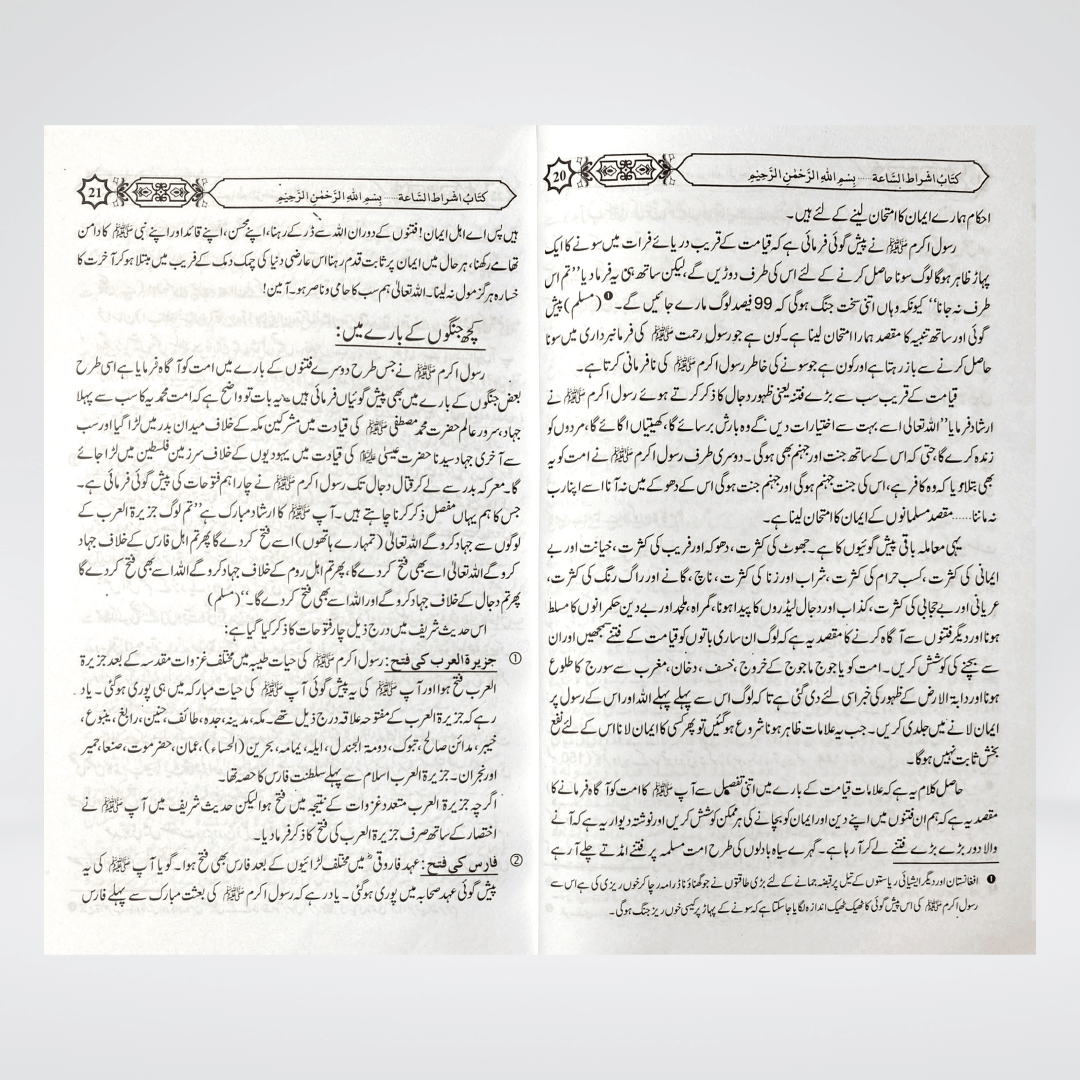 کتابُ اشراط السَّاعۃ.....بِسْمِ اللّٰہِ الرَّحْمٰنِ الرَّحِیْمِ
20
احکام ہمارے ایمان کا امتحان لینے کے لئے ہیں۔
رسول اکرم ﷺ نے پیش گوئی فرمائی ہے کہ قیامت کے قریب دریائے فرات میں سونے کا ایک
پہاڑ ظاہر ہوگا لوگ سونا حاصل کرنے کے لئے اس کی طرف دوڑیں گے، لیکن ساتھ ہی یہ فرما دیا ”تم اس
طرف نہ جانا“ کیونکہ وہاں اتنی سخت جنگ ہوگی کہ 99 فیصد لوگ مارے جائیں گے۔❶ (مسلم) پیش
گوئی اور ساتھ تنبیہ کا مقصد ہمارا امتحان لینا ہے۔ کون ہے جو رسول رحمت ﷺ کی فرمانبرداری میں سونا
حاصل کرنے سے باز رہتا ہے اور کون ہے جو سونے کی خاطر رسول اکرم ﷺ کی نافرمانی کرتا ہے۔
قیامت کے قریب سب سے بڑے فتنہ یعنی ظہور دجال کا ذکر کرتے ہوئے رسول اکرم ﷺ نے
ارشاد فرمایا ”اللہ تعالیٰ اسے بہت سے اختیارات دیں گے وہ بارش برسائے گا، کھیتیاں اگائے گا، مردوں کو
زندہ کرے گا، حتی کہ اس کے ساتھ جنت اور جہنم بھی ہوگی۔ دوسری طرف رسول اکرم ﷺ نے امت کو یہ
بھی بتلا دیا کہ وہ کافر ہے، اس کی جنت جہنم ہوگی اور جہنم جنت ہوگی اس کے دھوکے میں نہ آنا اسے اپنا رب
نہ ماننا.....مقصد مسلمانوں کے ایمان کا امتحان لینا ہے۔
یہی معاملہ باقی پیش گوئیوں کا ہے۔ جھوٹ کی کثرت، دھوکہ اور فریب کی کثرت، خیانت اور بے
ایمانی کی کثرت، کسب حرام کی کثرت، شراب اور زنا کی کثرت، ناچ، گانے اور راگ رنگ کی کثرت،
عریانی اور بے حجابی کی کثرت، کذاب اور دجال لیڈروں کا پیدا ہونا، گمراہ، ملحد اور بے دین حکمرانوں کا مسلط
ہونا اور دیگر فتنوں سے آگاہ کرنے کا مقصد یہ ہے کہ لوگ ان ساری باتوں کو قیامت کے فتنے سمجھیں اور ان
سے بچنے کی کوشش کریں۔ امت کو یاجوج ماجوج کے خروج، خسف، دخان، مغرب سے سورج کا طلوع
ہونا اور دابۃ الارض کے ظہور کی خبر اسی لئے دی گئی ہے تاکہ لوگ اس سے پہلے پہلے اللہ اور اس کے رسول پر
ایمان لانے میں جلدی کریں۔ جب یہ علامات ظاہر ہونا شروع ہوگئیں تو پھر کسی کا ایمان لانا اس کے لئے نفع
بخش ثابت نہیں ہوگا۔
حاصل کلام یہ ہے کہ علامات قیامت کے بارے میں اتنی تفصیل سے آپ ﷺ کا امت کو آگاہ فرمانے کا
مقصد یہ ہے کہ ہم ان فتنوں میں اپنے دین اور ایمان کو بچانے کی ہر ممکن کوشش کریں اور نوشتہ دیوار یہ ہے کہ آنے
والا دور بڑے بڑے فتنے لے کر آ رہا ہے۔ گہرے سیاہ بادلوں کی طرح امت مسلمہ پر فتنے امڈتے چلے آ رہے
❶ افغانستان اور دیگر ایشیائی ریاستوں کے تیل پر قبضہ جمانے کے لئے بڑی طاقتوں نے جو گھناؤنا ڈرامہ رچا کر خوں ریزی کی ہے اس سے
رسول اکرم ﷺ کی اس پیش گوئی کا ٹھیک ٹھیک اندازہ لگایا جا سکتا ہے کہ سونے کے پہاڑ پر کیسی خوں ریز جنگ ہوگی۔
کتابُ اشراط السَّاعۃ.....بِسْمِ اللّٰہِ الرَّحْمٰنِ الرَّحِیْمِ
21
ہیں پس اے اہل ایمان! فتنوں کے دوران اللہ سے ڈر کے رہنا، اپنے محسن، اپنے قائد اور اپنے نبی ﷺ کا دامن
تھامے رکھنا، ہر حال میں ایمان پر ثابت قدم رہنا اس عارضی دنیا کی چمک دمک کے فریب میں مبتلا ہو کر آخرت کا
خسارہ ہرگز مول نہ لینا۔ اللہ تعالیٰ ہم سب کا حامی و ناصر ہو۔ آمین!
کچھ جنگوں کے بارے میں:
رسول اکرم ﷺ نے جس طرح دوسرے فتنوں کے بارے میں امت کو آگاہ فرمایا ہے اسی طرح
بعض جنگوں کے بارے میں بھی پیش گوئیاں فرمائی ہیں۔ یہ بات تو واضح ہے کہ امت محمدیہ کا سب سے پہلا
جہاد، سرور عالم حضرت محمد مصطفیٰ ﷺ کی قیادت میں مشرکین مکہ کے خلاف میدان بدر میں لڑا گیا اور سب
سے آخری جہاد سیدنا حضرت عیسیٰ علیہ السلام کی قیادت میں یہودیوں کے خلاف سر زمین فلسطین میں لڑا جائے
گا۔ معرکہ بدر سے لے کر قتال دجال تک رسول اکرم ﷺ نے چار اہم فتوحات کی پیش گوئی فرمائی ہے۔
جس کا ہم یہاں مفصل ذکر کرنا چاہتے ہیں۔ آپ ﷺ کا ارشاد مبارک ہے ”تم لوگ جزیرۃ العرب کے
لوگوں سے جہاد کرو گے اللہ تعالیٰ (تمہارے ہاتھوں) اسے فتح کر دے گا پھر تم اہل فارس کے خلاف جہاد
کرو گے اللہ تعالیٰ اسے بھی فتح کر دے گا، پھر تم اہل روم کے خلاف جہاد کرو گے اللہ اسے بھی فتح کر دے گا
پھر تم دجال کے خلاف جہاد کرو گے اور اللہ اسے بھی فتح کر دے گا۔“ (مسلم)
اس حدیث شریف میں درج ذیل چار فتوحات کا ذکر کیا گیا ہے:
① جزیرۃ العرب کی فتح: رسول اکرم ﷺ کی حیات طیبہ میں مختلف غزوات مقدسہ کے بعد جزیرۃ
العرب فتح ہوا اور آپ ﷺ کی یہ پیش گوئی آپ ﷺ کی حیات مبارکہ میں ہی پوری ہوگئی۔ یاد
رہے کہ جزیرۃ العرب کے مفتوحہ علاقہ درج ذیل تھے۔ مکہ، مدینہ، جدہ، طائف، حنین، رابغ، ینبوع،
خیبر، مدائن صالح، تبوک، دومۃ الجندل، ایلہ، یمامہ، بحرین (الحساء)، عمان، حضرموت، صنعا، حمیر
اور نجران۔ جزیرۃ العرب اسلام سے پہلے سلطنت فارس کا حصہ تھا۔
اگرچہ جزیرۃ العرب متعدد غزوات کے نتیجہ میں فتح ہوا لیکن حدیث شریف میں آپ ﷺ نے
اختصار کے ساتھ صرف جزیرۃ العرب کی فتح کا ذکر فرما دیا۔
② فارس کی فتح: عہد فاروقی ؓ میں مختلف لڑائیوں کے بعد فارس بھی فتح ہوا۔ گویا آپ ﷺ کی یہ
پیش گوئی عہد صحابہ میں پوری ہوگئی۔ یاد رہے کہ رسول اکرم ﷺ کی بعثت مبارک سے پہلے فارس